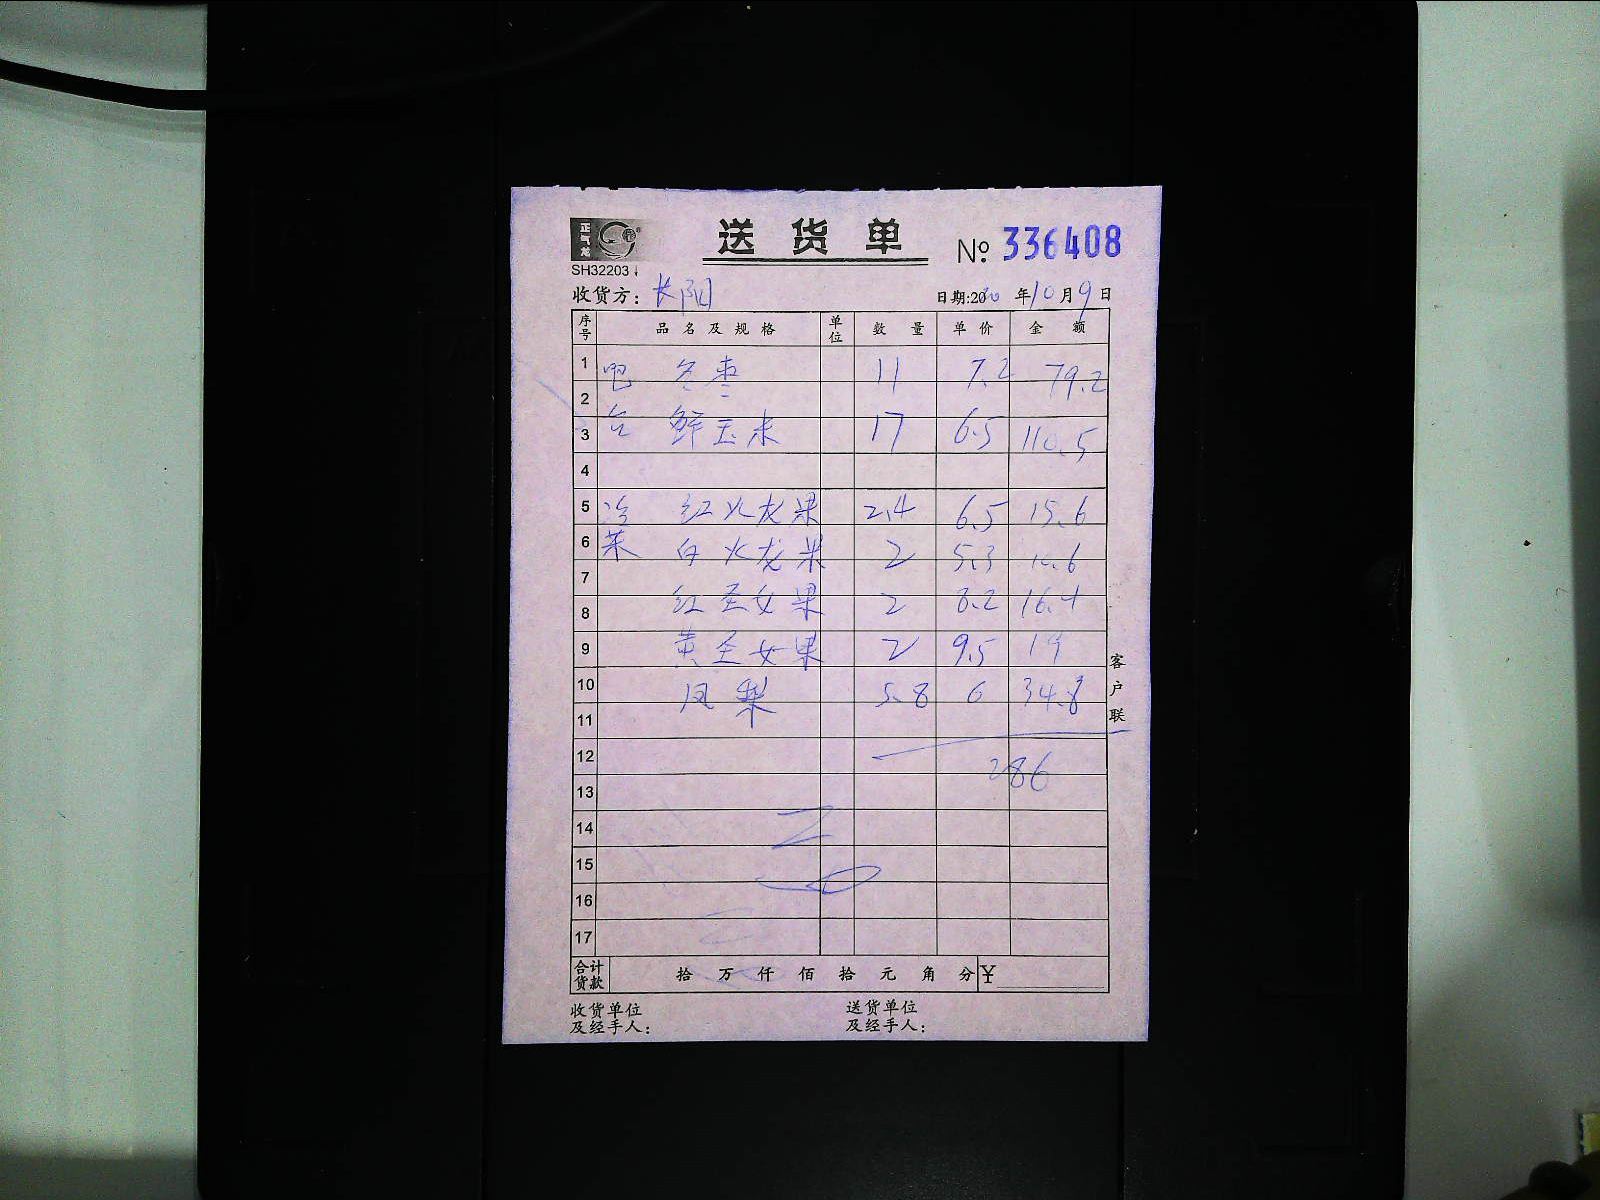 正气龙
送货单
№ 336408
SH32203
收货方：长阳
日期:2020年10月9日
序号 品名及规格 单位 数量 单价 金额
1 吧 冬枣 11 7.2 79.2
2
3 台 鲜玉米 17 6.5 110.5
4
5 冷 红火龙果 2.4 6.5 15.6
6 菜 白火龙果 2 5.3 10.6
7
8 红圣女果 2 8.2 16.4
9 黄圣女果 2 9.5 19
10 凤梨 5.8 6 34.8
11
12
286
13
14
15
16
17
合计货款 拾万仟佰拾元角分 ¥
客户联
收货单位及经手人：
送货单位及经手人：